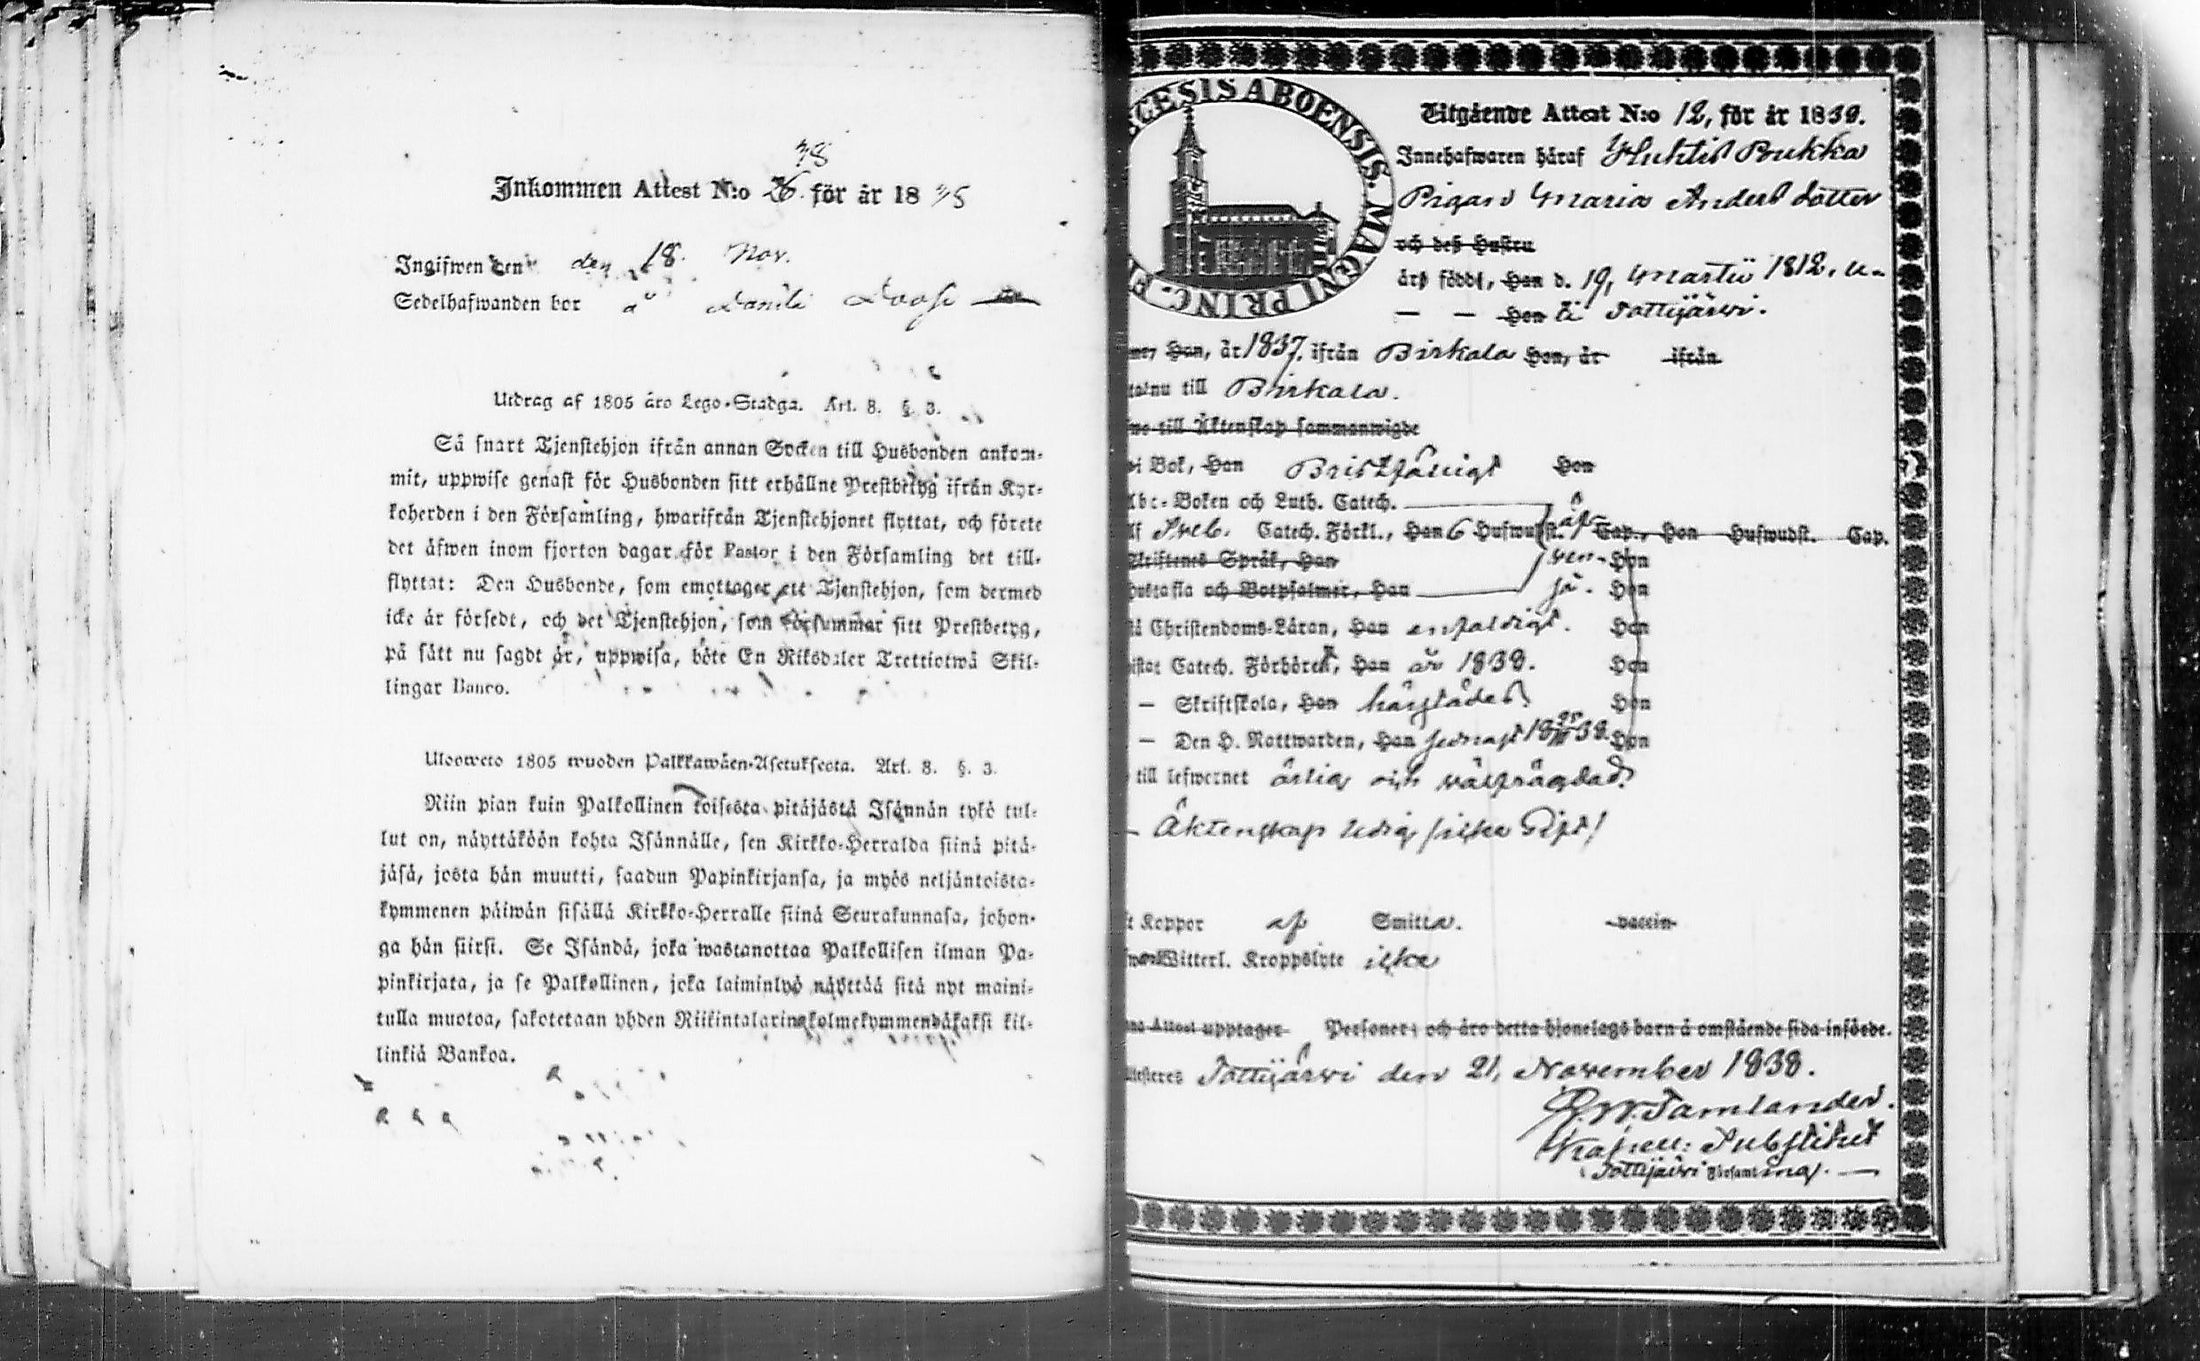 38
Inkommen Attest N:o 26. för år 18 35
Ingifwen den den 18. Nov.
Sedelhafwanden bor å
Utdrag af 1805 års Lego-Stadga. Art. 8. §. 3.
Så snart Tjenstehjon ifrån annan Socken till Husbonden ankom-
mit, uppwise genast för Husbonden sitt erhållne Prestbetyg ifrån Kyr-
koherden i den Församling, hwarifrån Tjenstehjonet flyttat, och förete
det äfwen inom fjorton dagar för Pastor i den Församling det till-
flyttat: Den Husbonde, som emottager ett Tjenstehjon, som dermed
icke är försedt, och det Tjenstehjon, som försummar sitt Prestbetyg,
på sätt nu sagdt är, uppwisa, böte En Riksdaler Trettiotwå Skil-
lingar Banco.
Ulosweto 1805 wuoden Palkkawäen-Asetuksesta. Art. 8. §. 3.
Niin pian kuin Palkollinen toisesta pitäjästä Isännän tykö tul-
lut on, näyttäköön kohta Isännälle, sen Kirkko-Herralda siinä pitä-
jäsä, josta hän muutti, saadun Papinkirjansa, ja myös neljäntoista-
kymmenen päiwän sisällä Kirkko-Herralle siinä Seurakunnasa, johon-
ga hän siirsi. Se Isändä, joka wastanottaa Palkollisen ilman Pa-
pinkirjata, ja se Palkollinen, joka laiminlyö näyttää sitä nyt maini-
tulla muotoa, sakotetaan yhden Riikintalarin kolmekymmendäkaksi kil-
linkiä Bankoa.
ECESIS ABOENSIS. MAGNI PRINC. F
Utgående Attest N:o 12, för år 1839.
Innehafwaren häraf Huhtis Poukka
Pigan Maria Anders dotter
och deß Hustru
äro född, Han d. 19, Martii 1812. u-
— — Hon ti Tottijärvi.
Han, år 1837. ifrån Birkala Hon, år ifrån
nu till Birkala.
till Äktenskap sammanwigde
i Bok, Han Bristfäligt Hon
Abc-Boken och Luth. Catech.
Sveb. Catech. Förkl., Han 6 Hufwudst. Cap., Hon Hufwudst. Cap.
Skriftenes Språk, Han ven- Hon
Hustafla och Botpsalmer, Han så. Hon
Christendoms-Läran, Han enfaldigt. Hon
Catech. Förhören, Han år 1838. Hon
— Skriftskola, Han härstädes Hon
— Den H. Nattwarden, Han sednast 18 38. Hon
till lefwernet ärlig och välfrägdad.
— Äktenskap ledig /icke Gift/
Koppor af Smitta. vaccin
Witterl. Kroppslyte icke
Attest upptager Personer; och äro detta hjonelags barn å omstående sida införde.
Tottijärvi den 21, November 1838.
Tamlander.
Kapell: Substitut
i Tottijärvi Församling. —